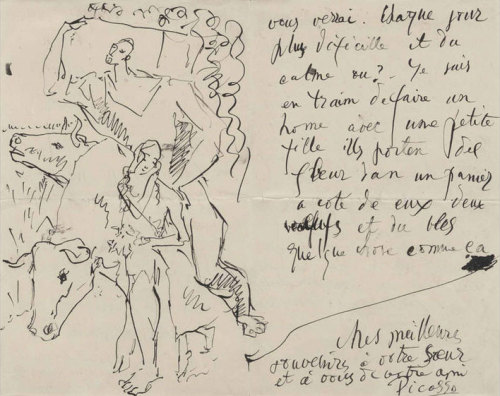 vous verrai. Chaque jour
plus dificille et du
calme ou? Je suis
en train de faire un
home avec une petite
fille ils porten des
fleur dan un panier
a cote de eux deux
et du bles
quelque chose comme ça
Mes meilleures
souvenirs à votre Sœur
et à vous de votre ami
Picasso